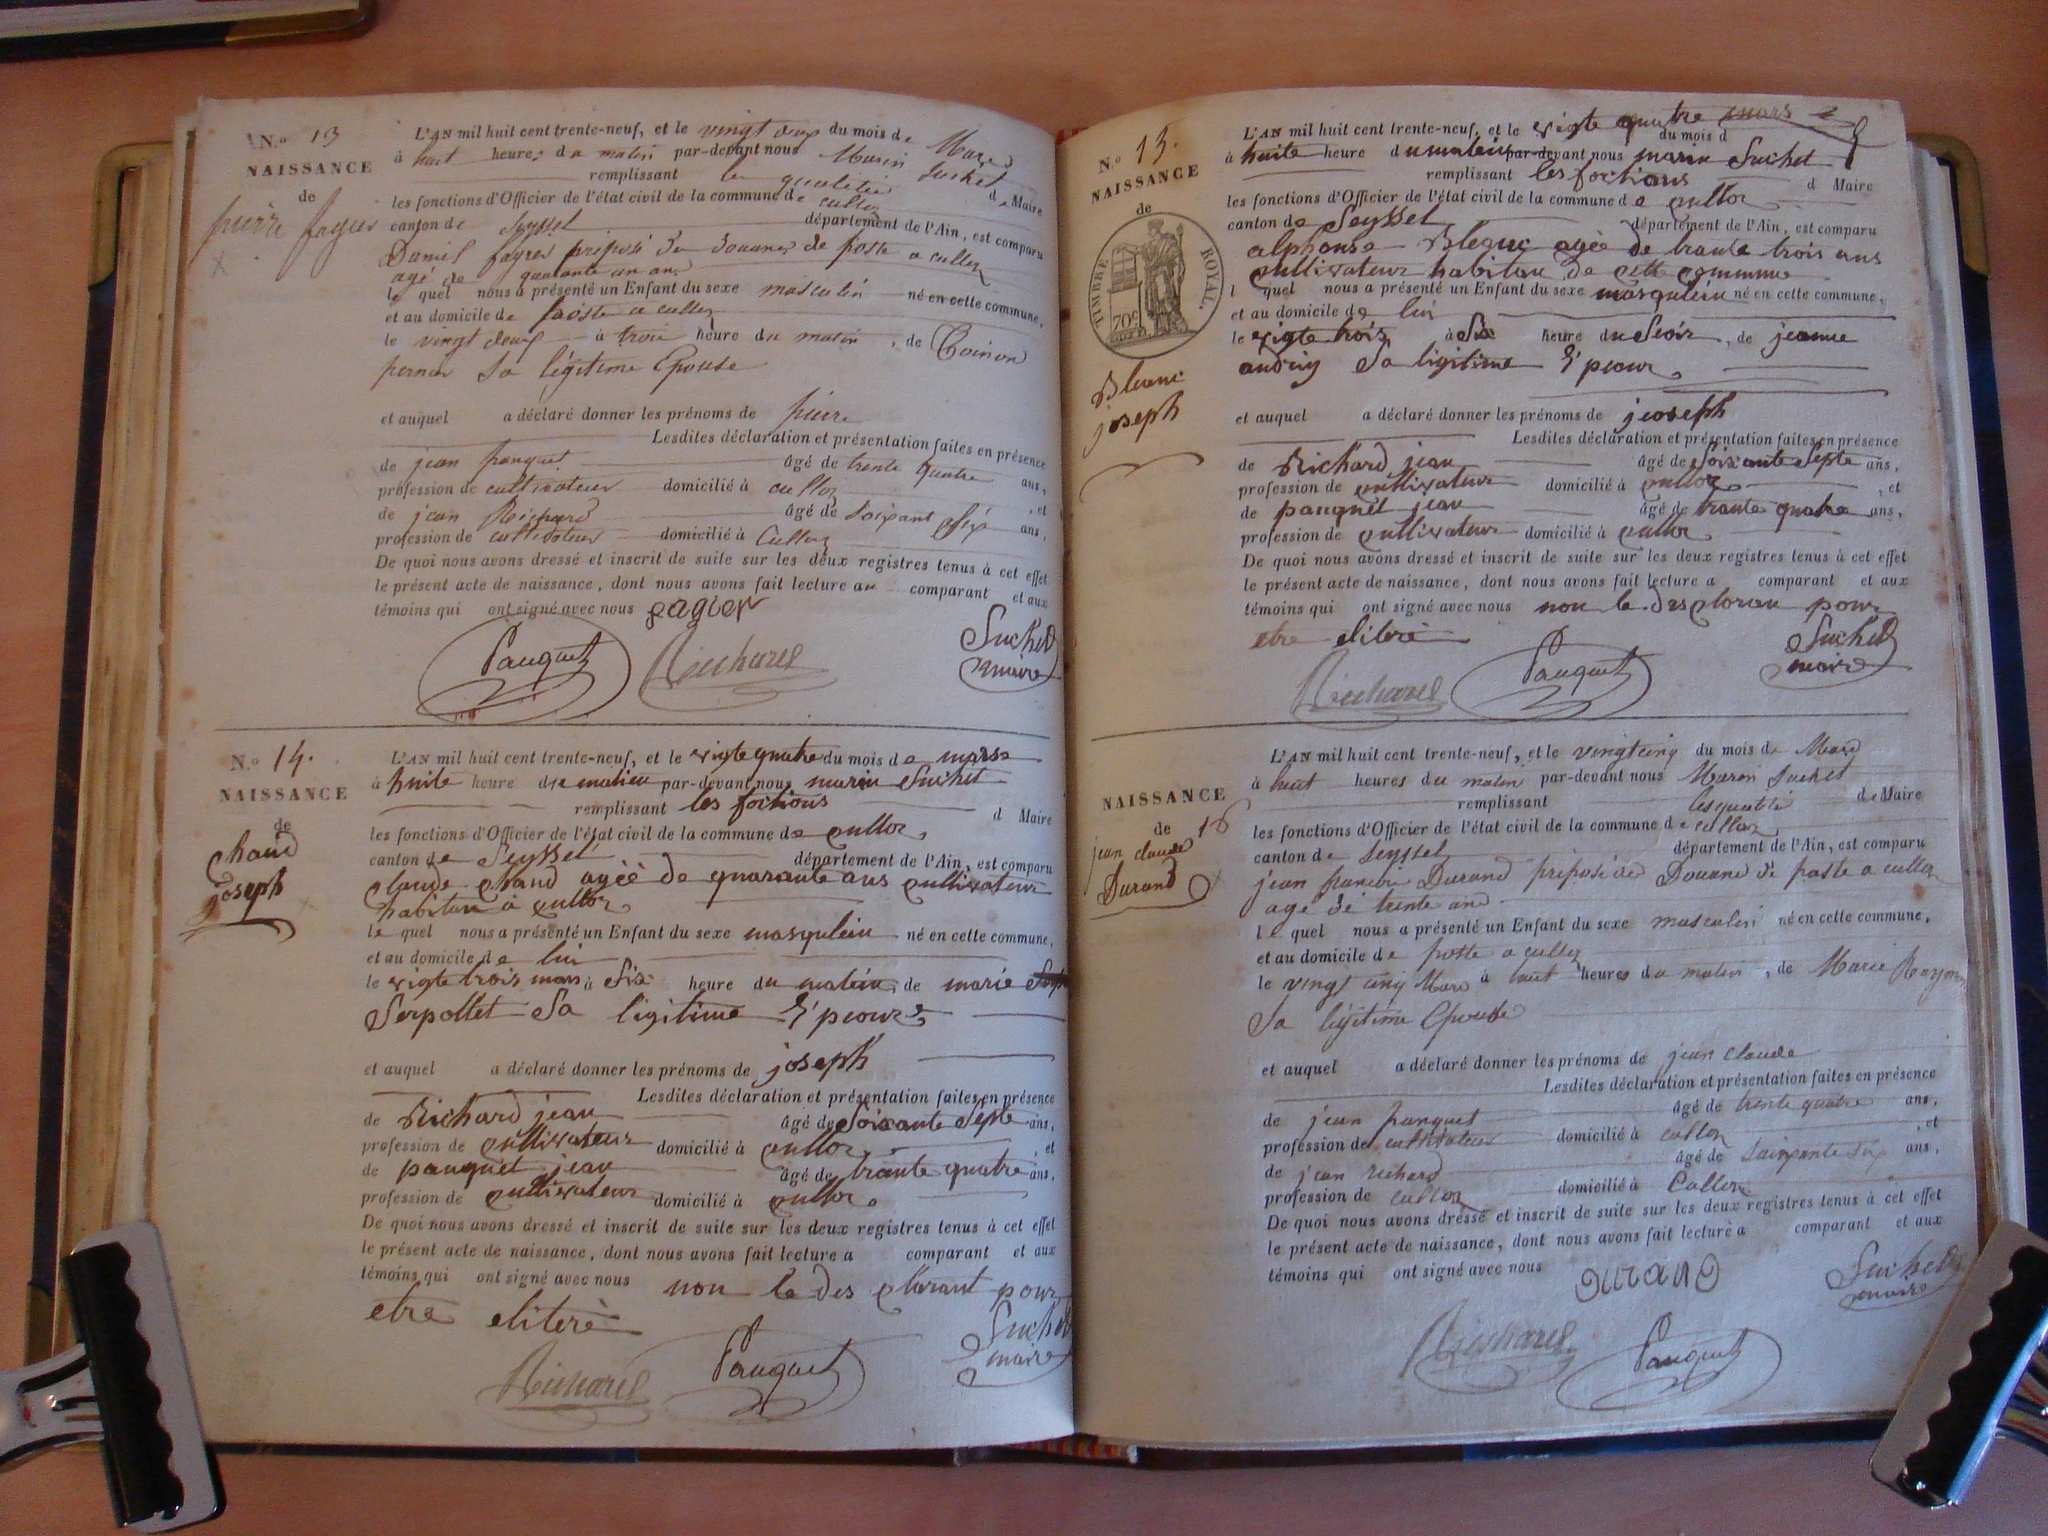 N.o 13
NAISSANCE
de
pierre fagier
L'AN mil huit cent trente-neuf, et le vingt deux du mois de Mars
à huit heures du matin par-devant nous Marin Suchet
remplissant la qualitée de Maire
les fonctions d'Officier de l'état civil de la commune de culloz
canton de Seyssel département de l'Ain, est comparu
Daniel fagier préposé de douanes de poste a culloz
agé de quarante un ans
le quel nous a présenté un Enfant du sexe masculin né en cette commune,
et au domicile de poste a culloz
le vingt deux à trois heure du matin, de Coinon
pernon Sa légitime Epouse
et auquel a déclaré donner les prénoms de pierre
Lesdites déclaration et présentation faites en présence
de jean pauquet âgé de trente quatre ans,
profession de cultivateur domicilié à culloz, et
de jean Richard âgé de Soixant Six ans,
profession de cultivateur domicilié à Culloz
De quoi nous avons dressé et inscrit de suite sur les deux registres tenus à cet effet
le présent acte de naissance, dont nous avons fait lecture au comparant et aux
témoins qui ont signé avec nous fagier
Pauquet Richard Suchet
maire
N.o 14.
NAISSANCE
de
Chand
joseph
L'AN mil huit cent trente-neuf, et le vigte quatre du mois de marse
à huite heure du matien par-devant nous marin Suchet
remplissant les foctions d Maire
les fonctions d'Officier de l'état civil de la commune de culloz,
canton de Seyssel département de l'Ain, est comparu
claude chand agèe de quarante ans cultivateur
habitan à culloz
le quel nous a présenté un Enfant du sexe masqulein né en cette commune,
et au domicile de lui
le vigte trois mars à Six heure du matein, de marie
Serpollet Sa ligitime E'peour
et auquel a déclaré donner les prénoms de joseph
Lesdites déclaration et présentation faites en présence
de Richard jean âgé de Soixante Septe ans,
profession de cultivateur domicilié à culloz, et
de pauquet jean âgé de trante quatre ans,
profession de cultivateur domicilié à culloz
De quoi nous avons dressé et inscrit de suite sur les deux registres tenus à cet effet
le présent acte de naissance, dont nous avons fait lecture a comparant et aux
témoins qui ont signé avec nous non le des clorant pour
etre eliterè
Richard Pauquet Suchet
maire
N.o 15.
NAISSANCE
de
TIMBRE ROYAL.
70c
Blanc
joseph
L'AN mil huit cent trente-neuf, et le vigte quatre mars
du mois d
à huite heure du matein par-devant nous marin Suchet
remplissant les foctions d Maire
les fonctions d'Officier de l'état civil de la commune de culloz
canton de Seyssel département de l'Ain, est comparu
alphonse Blanc agèe de trante trois ans
cultivateur habitan de cette commune
l quel nous a présenté un Enfant du sexe masqulein né en cette commune,
et au domicile de lui
le vigte trois à Six heure du Seoir, de jeanne
Sa ligitime E'peour
et auquel a déclaré donner les prénoms de jeoseph
Lesdites déclaration et présentation faites en présence
de Richard jean âgé de Soixante Septe ans,
profession de cultivateur domicilié à culloz, et
de pauquet jean âgé de trante quatre ans,
profession de cultivateur domicilié à culloz
De quoi nous avons dressé et inscrit de suite sur les deux registres tenus à cet effet
le présent acte de naissance, dont nous avons fait lecture a comparant et aux
témoins qui ont signé avec nous non le des cloran pour
etre eliterè
Richard Pauquet Suchet
maire
NAISSANCE
de 16
jean claude
Durand
L'AN mil huit cent trente-neuf, et le vingt cinq du mois de Mars
à huit heures du matin par-devant nous Marin Suchet
remplissant les qualité de Maire
les fonctions d'Officier de l'état civil de la commune de culloz
canton de Seyssel département de l'Ain, est comparu
jean francois Durand préposé des Douane de poste a culloz
agé de trente ans
le quel nous a présenté un Enfant du sexe masculin né en cette commune,
et au domicile de poste a culloz
le vingt cinq Mars à huit heures du matin, de Marie
Sa légitime Epouse
et auquel a déclaré donner les prénoms de jean claude
Lesdites déclaration et présentation faites en présence
de jean pauquet âgé de trente quatre ans,
profession de cultivateur domicilié à culloz, et
de jean richard âgé de Soixante Six ans,
profession de culloz domicilié à Culloz
De quoi nous avons dressé et inscrit de suite sur les deux registres tenus à cet effet
le présent acte de naissance, dont nous avons fait lecture a comparant et aux
témoins qui ont signé avec nous DURAND Suchet
maire
Richard Pauquet